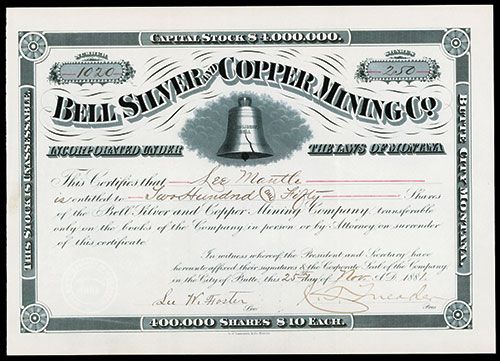 CAPITAL STOCK $4,000,000.
NUMBER
1020
SHARES
250
BELL SILVER AND COPPER MINING CO.
INCORPORATED UNDER THE LAWS OF MONTANA
THIS STOCK IS UNASSESSABLE
BUTTE CITY MONTANA.
This Certifies that Lee Mantle
is entitled to Two Hundred & Fifty Shares
of the Bell Silver and Copper Mining Company, transferable
only on the books of the Company in person or by Attorney on surrender
of this certificate.
In witness whereof the President and Secretary have
hereunto affixed their signatures & the Corporate Seal of the Company,
in the City of Butte, this 25th day of Nov A.D. 1882
Lee W. Foster
Sec
Pres
400.000 SHARES $10 EACH.